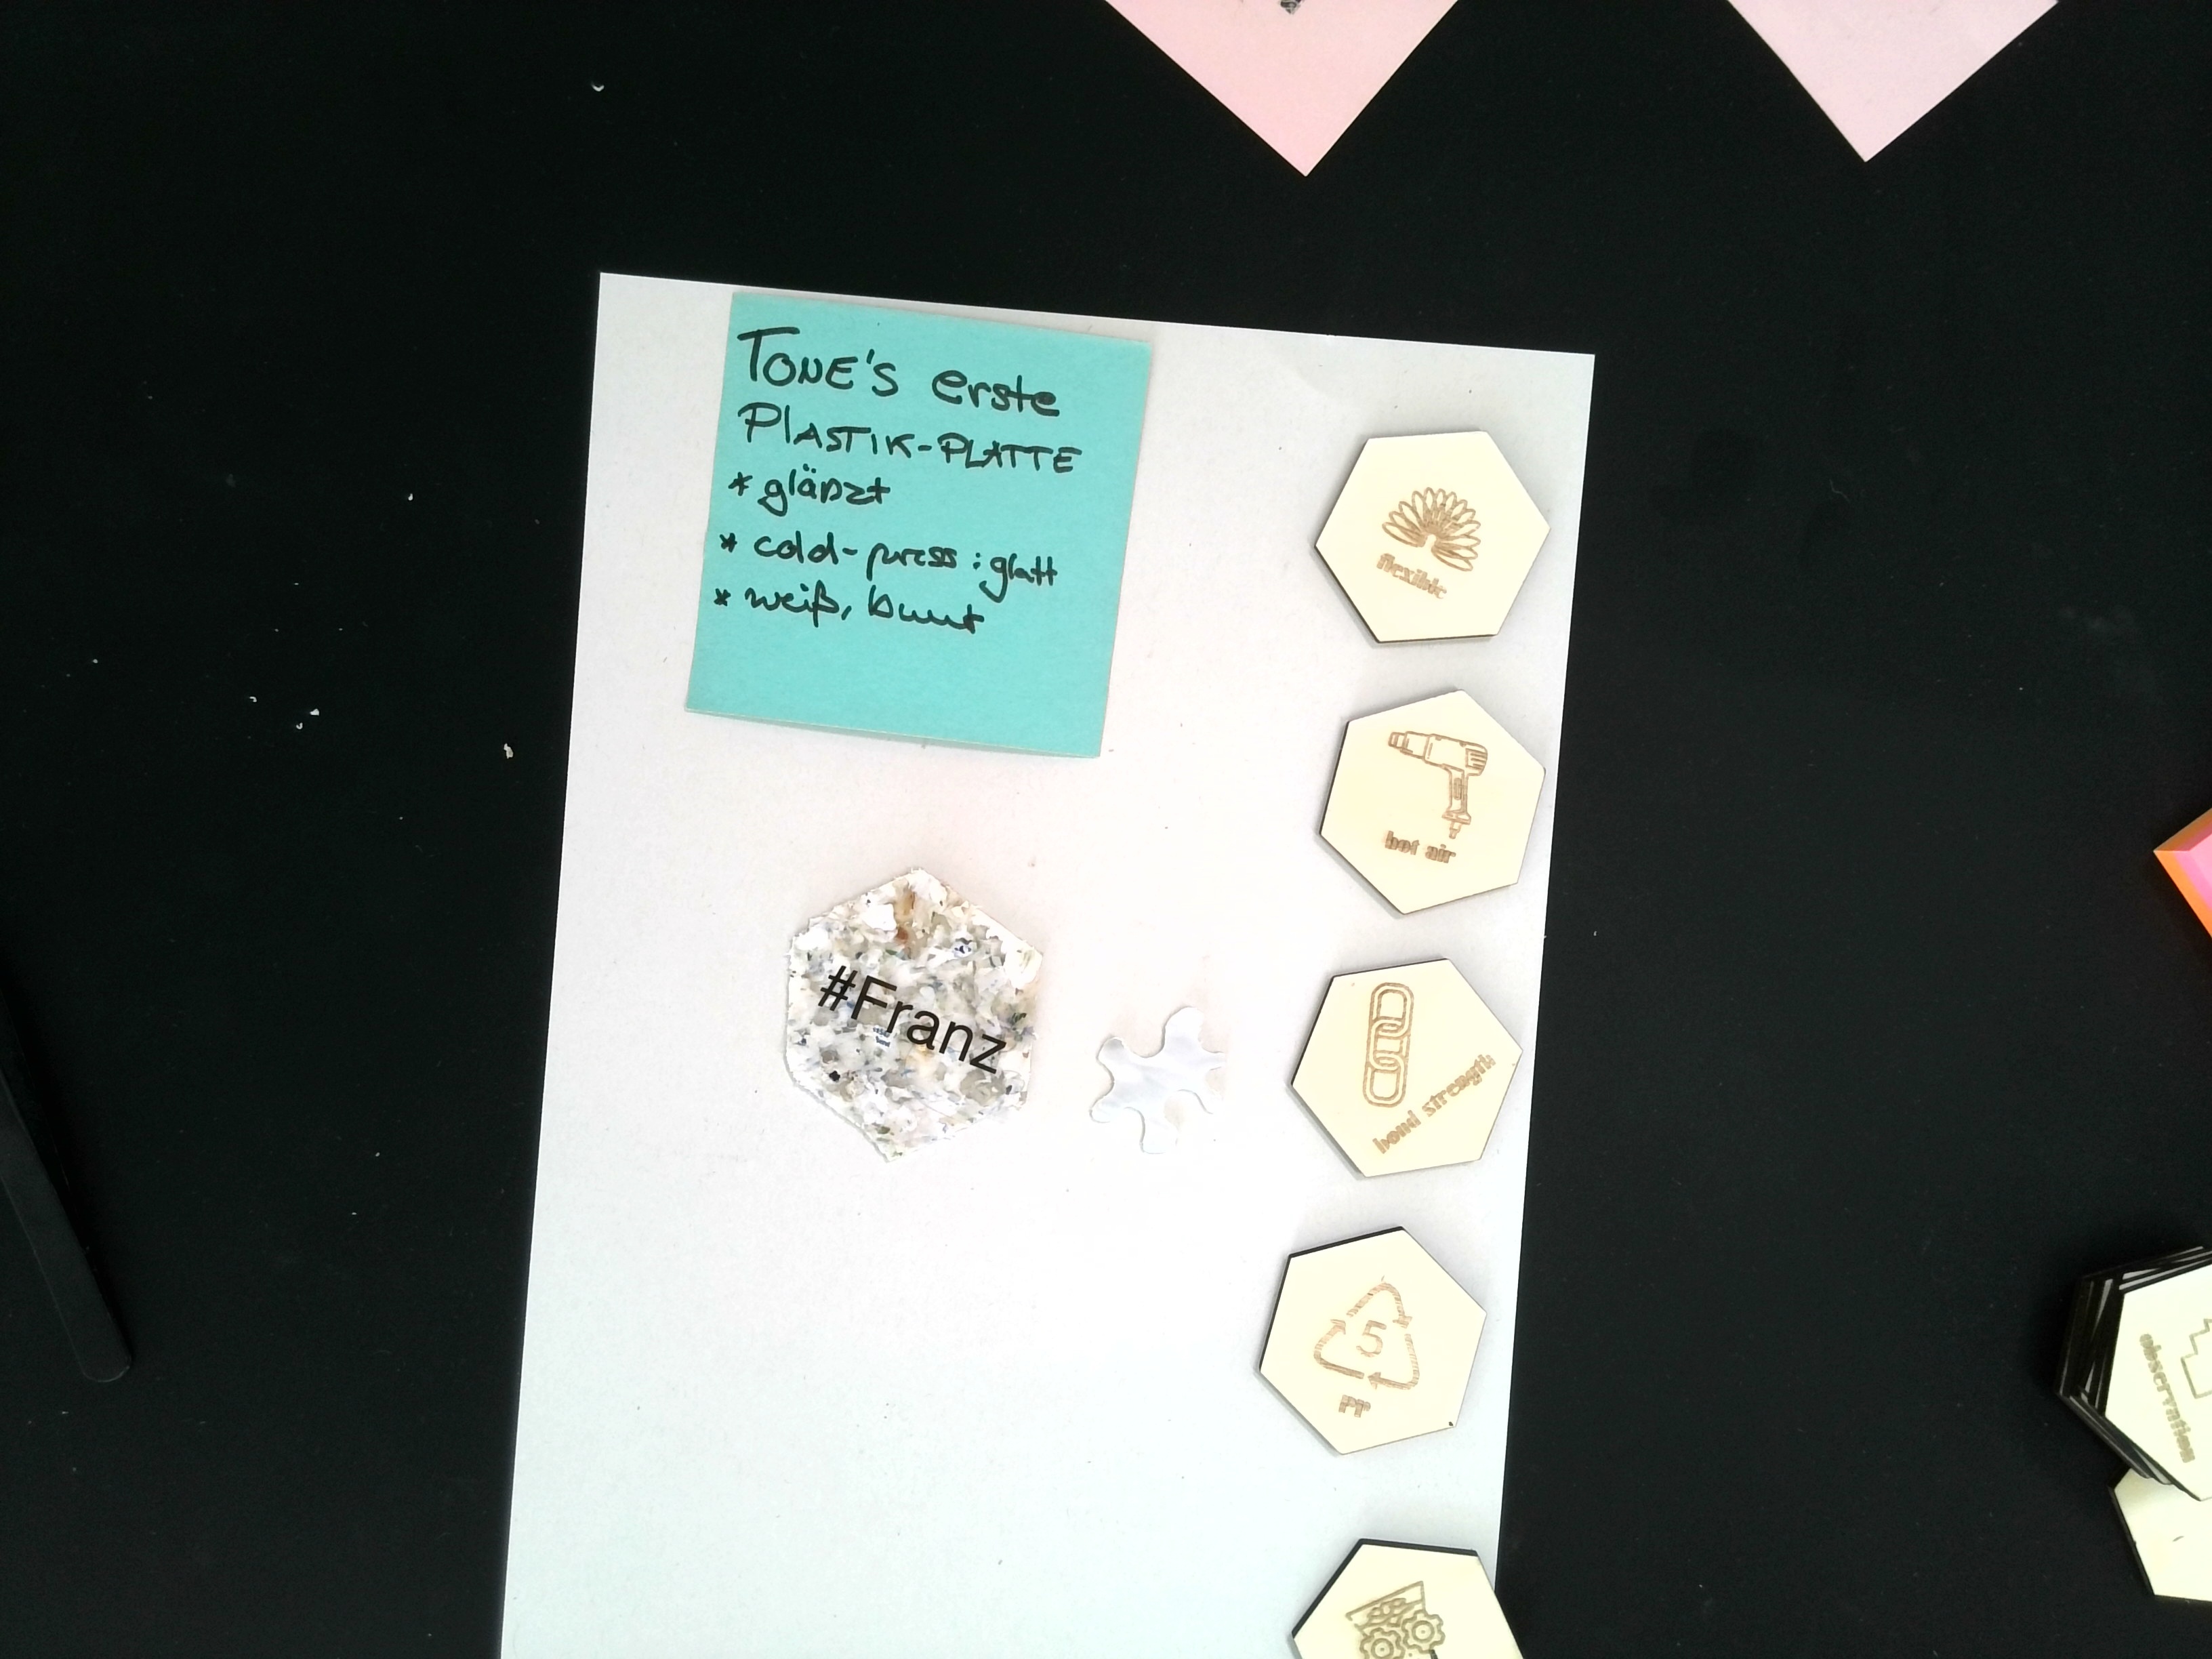 TONE'S erste
PLASTIK-PLATTE
* glänzt
* cold-press : glatt
* weiß, bunt
flexible
hot air
#Franz
bond strength
5
PP
observation